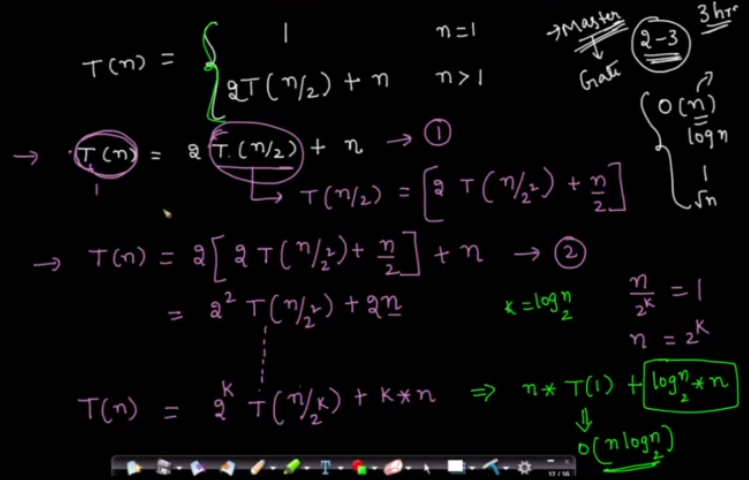 T(n) = { 1 n=1
2T(n/2) + n n>1
→ Master
Gate
2-3
3 hr
O(n)
log n
1
√n
→ T(n) = 2 T(n/2) + n → ①
1
→ T(n/2) = [2 T(n/2²) + n/2]
→ T(n) = 2[2 T(n/2²) + n/2] + n → ②
= 2² T(n/2²) + 2n
k = log₂n
n/2^k = 1
n = 2^k
T(n) = 2^k T(n/2^k) + k*n ⇒ n * T(1) + log₂n * n
⇓
O(n log₂n)
12 / 16